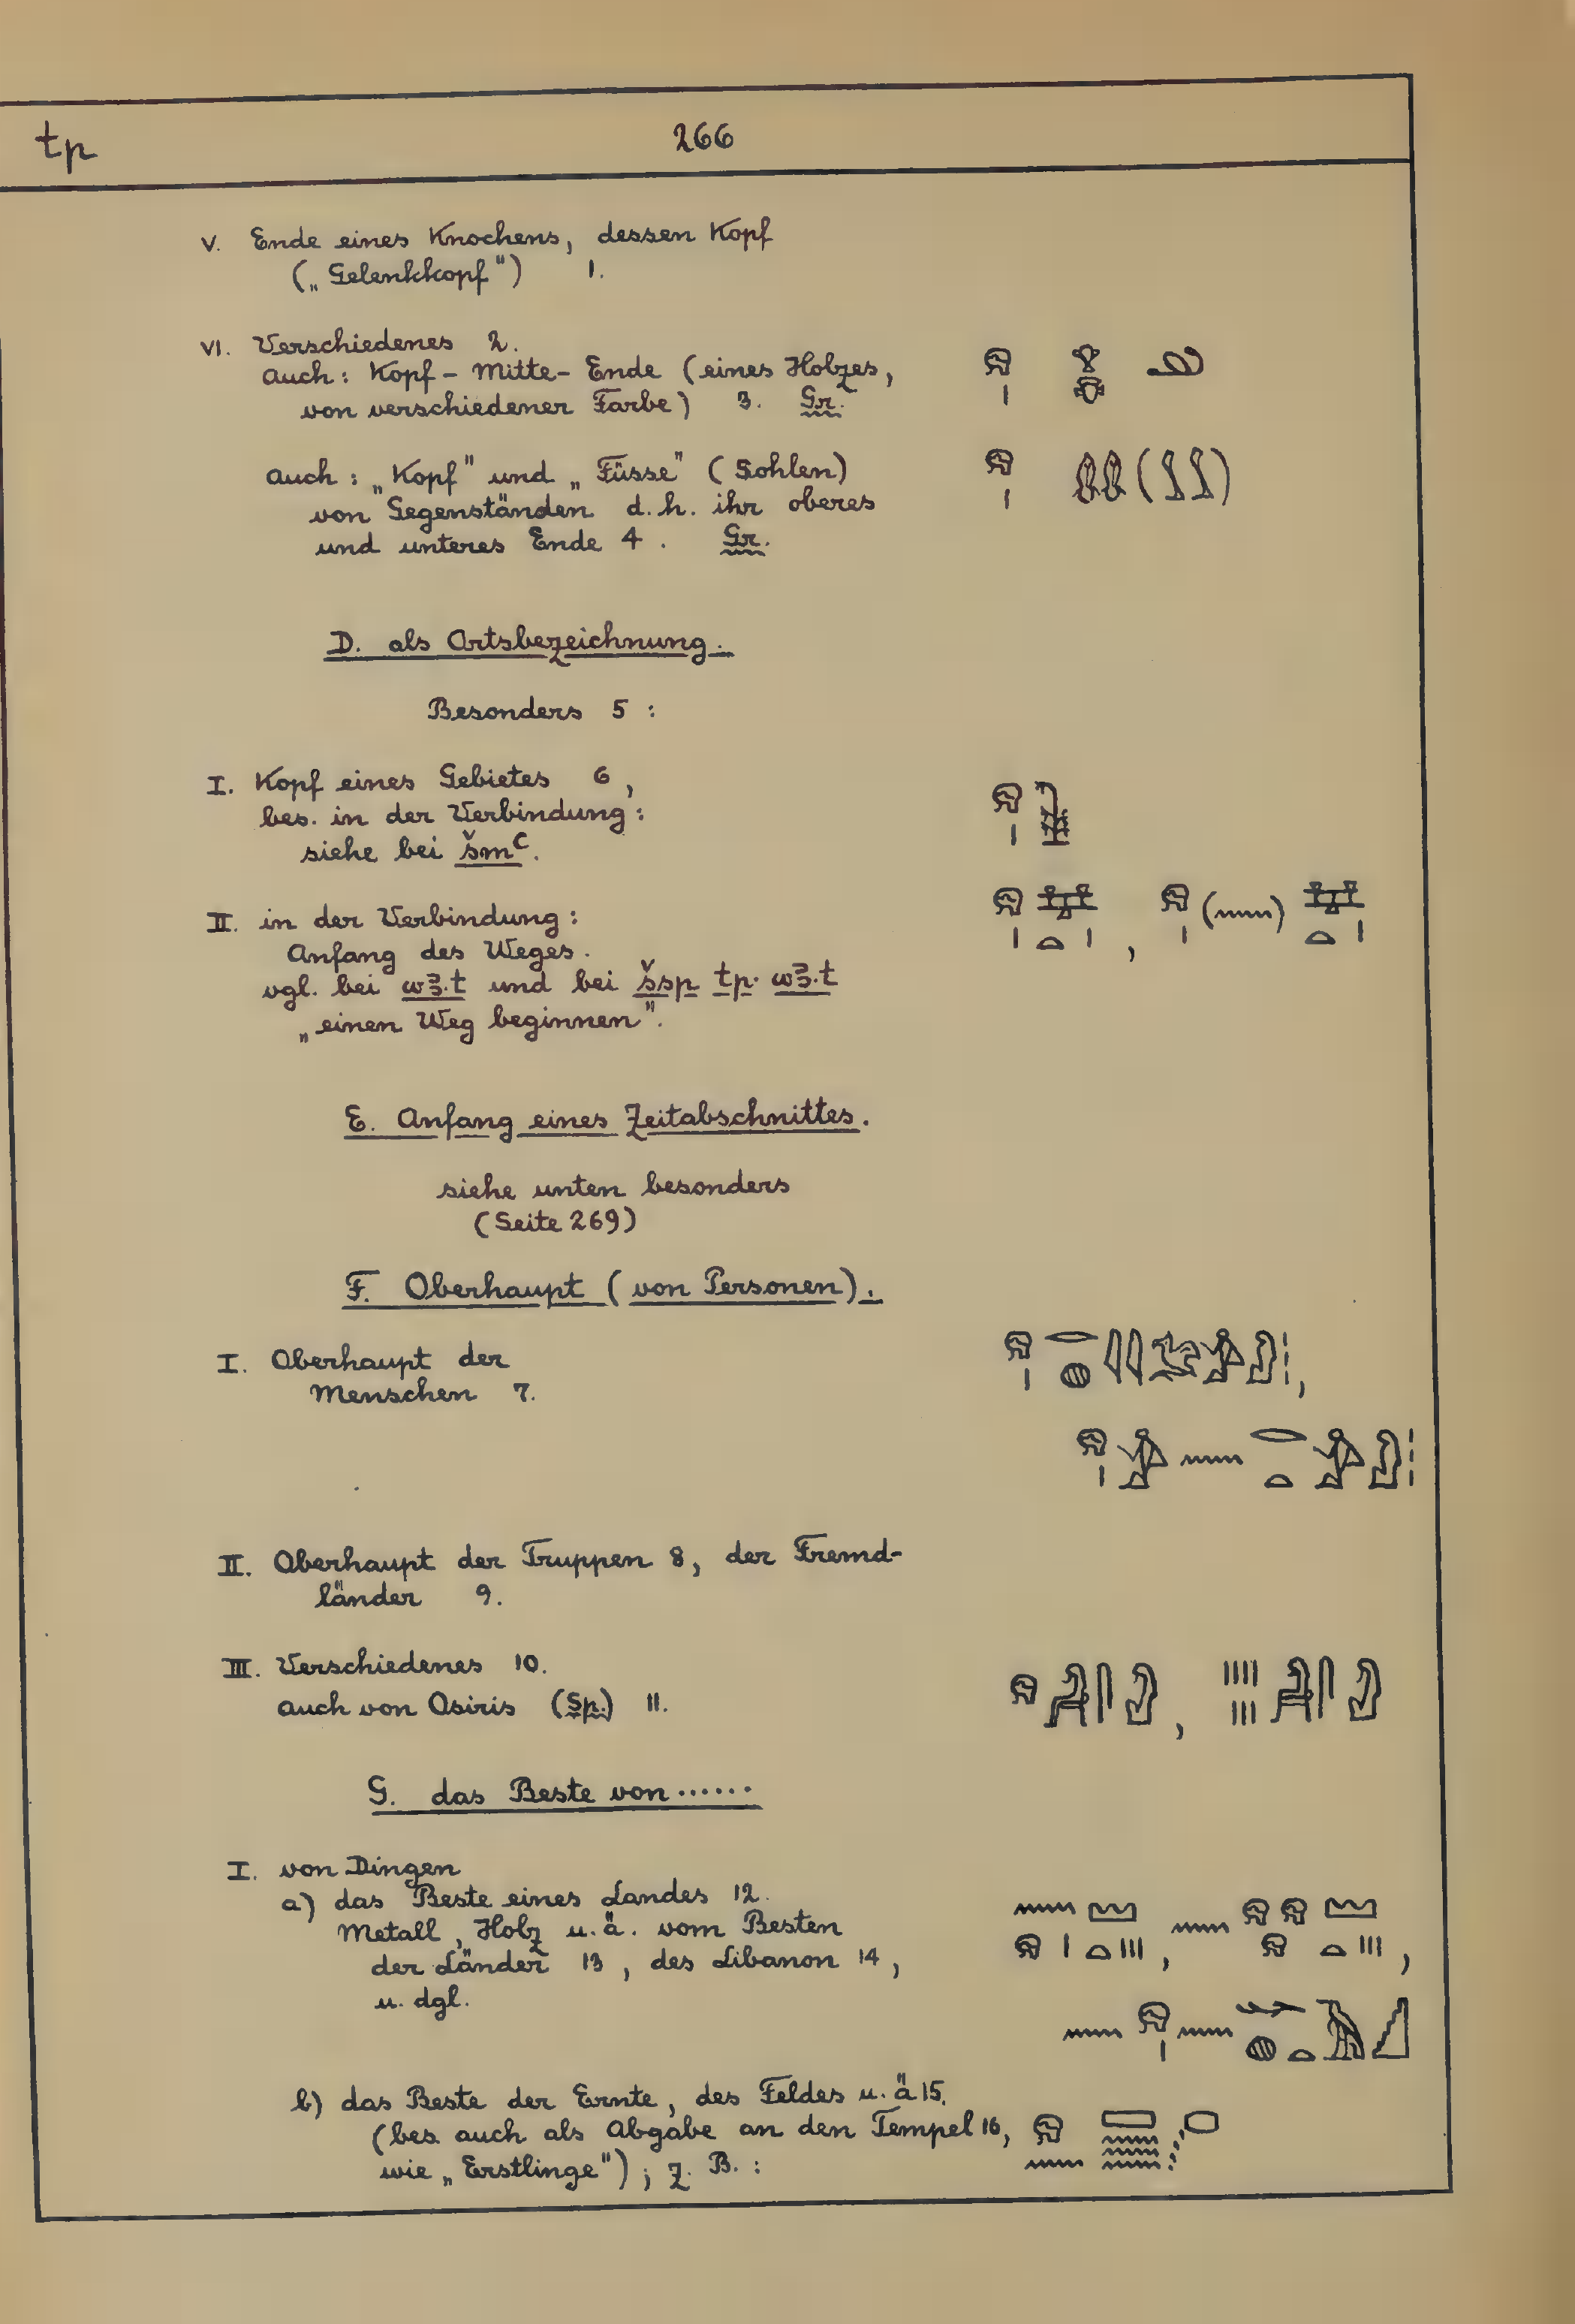 tp 266
V. Ende eines Knochens, dessen Kopf
(„Gelenkkopf") 1.
VI. Verschiedenes 2.
auch: Kopf - Mitte - Ende (eines Holzes,
von verschiedener Farbe) 3. Gr.
auch: „Kopf" und „Füsse" (Sohlen)
von Gegenständen d.h. ihr oberes
und unteres Ende 4. Gr.
D. als Ortsbezeichnung.
Besonders 5 :
I. Kopf eines Gebietes 6,
bes. in der Verbindung:
siehe bei šmꜥ.
II. in der Verbindung:
Anfang des Weges.
vgl. bei wꜣ.t und bei šsp tp wꜣ.t
„einen Weg beginnen".
E. Anfang eines Zeitabschnittes.
siehe unten besonders
(Seite 269)
F. Oberhaupt (von Personen).
I. Oberhaupt der
Menschen 7.
II. Oberhaupt der Truppen 8, der Fremd-
länder 9.
III. Verschiedenes 10.
auch von Osiris (Sp.) 11.
G. das Beste von ......
I. von Dingen
a) das Beste eines Landes 12.
Metall, Holz u.ä. vom Besten
der Länder 13, des Libanon 14,
u. dgl.
b) das Beste der Ernte, des Feldes u. ä 15.
(bes. auch als Abgabe an den Tempel 16,
wie „Erstlinge"); z. B. :